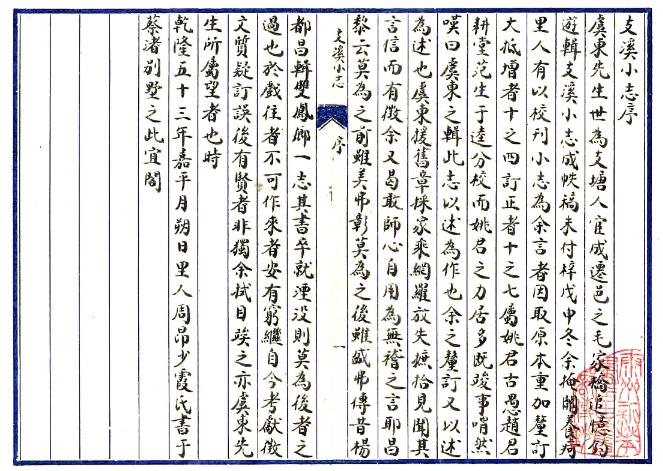 支溪小志序
虞東先生世為支塘人宦成遷邑之毛家橋追憶釣
遊輯支溪小志成帙稿未付梓戊申冬余抱關養疴
里人有以校刊小志為余言者因取原本重加釐訂
大抵增者十之四訂正者十之七屬姚君古愚趙君
耕堂范生于逵分校而姚君之力居多既竣事喟然
嘆曰虞東之輯此志以述為作也余之釐訂又以述
為述也虞東援舊章採家乘網羅放失摭拾見聞其
言信而有徵余又曷敢師心自用為無稽之言耶昌
黎云莫為之前雖美弗彰莫為之後雖盛弗傳昔楊
支溪小志
序
一
都昌輯雙鳳鄉一志其書卒就湮沒則莫為後者之
過也於戲往者不可作來者安有窮繼自今考獻徵
文質疑訂誤後有賢者非獨余拭目竢之亦虞東先
生所屬望者也時
乾隆五十三年嘉平月朔日里人周昂少霞氏書于
蔡渚別墅之此宜閣